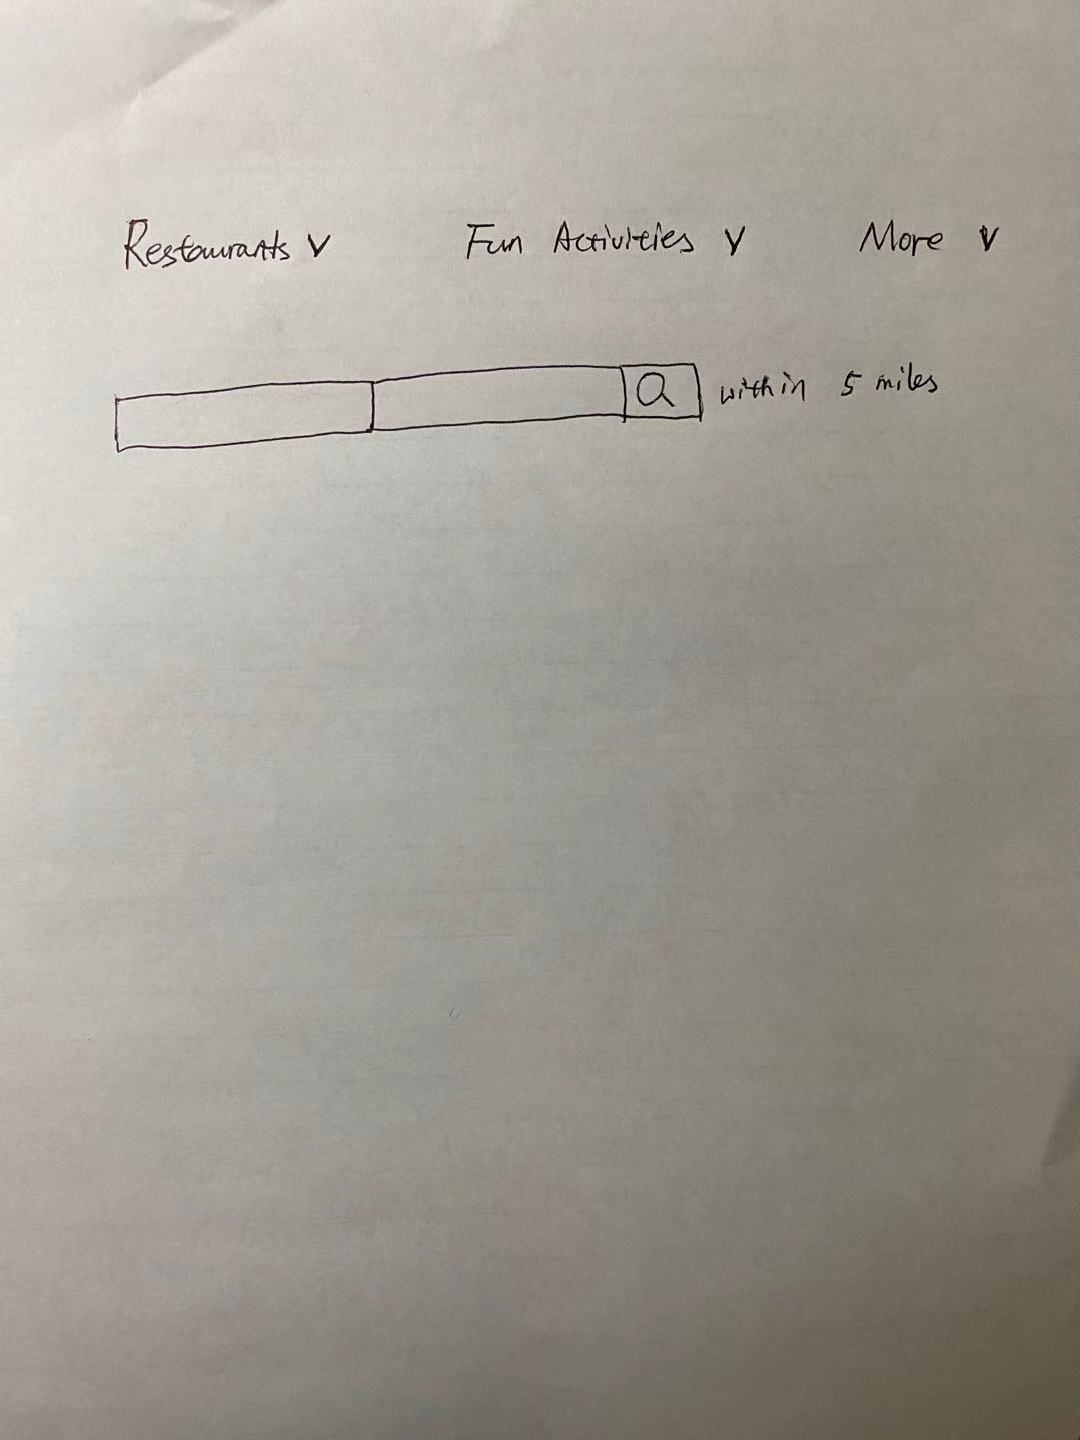 Restaurants v Fun Activities v More v
within 5 miles